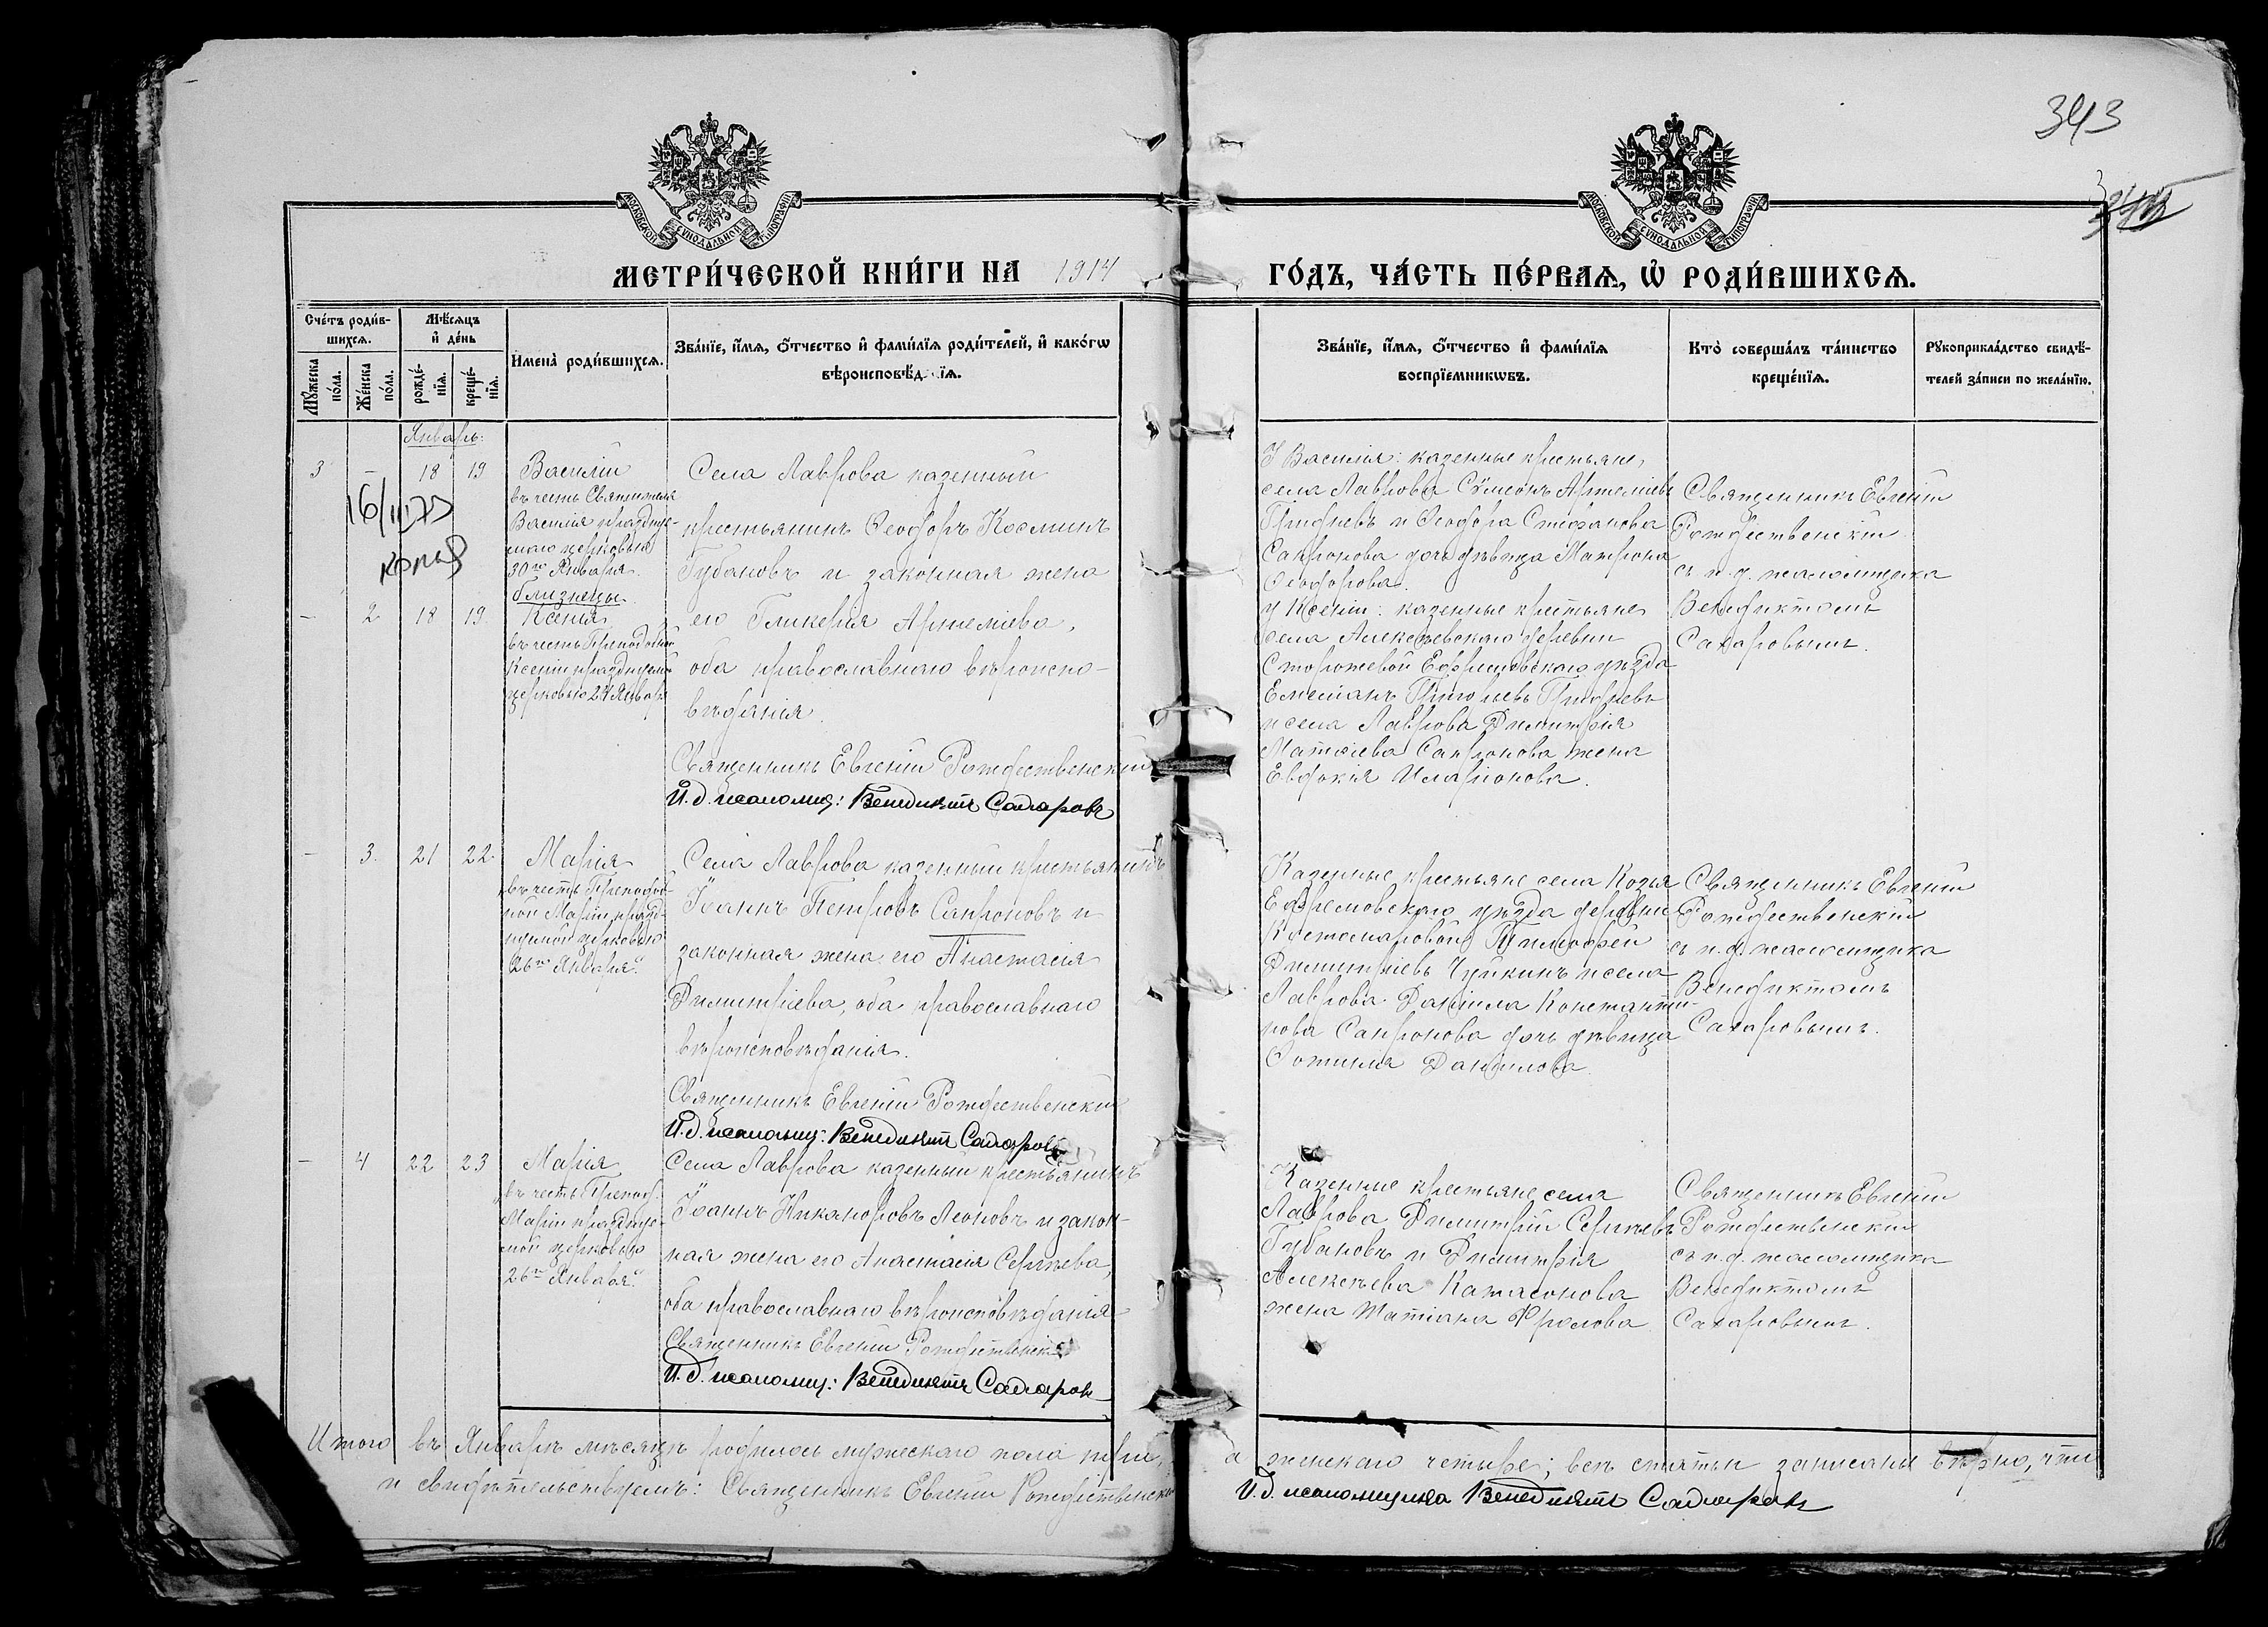 343
МОСКОВСКОЙ СУНОДАЛЬНОЙ ТИПОГРАФІИ
МОСКОВСКОЙ СУНОДАЛЬНОЙ ТИПОГРАФІИ
МЕТРИ́ЧЕСКОЙ КНИ́ГИ НА 1914
ГО́ДЪ, ЧА́СТЬ ПЕ́РВАѦ, Ѽ РОДИ́ВШИХСѦ.
Сче́тъ роди́в-
шихсѧ.
Мѣ́сѧцъ
и҆ де́нь
Мꙋ́жеска
по́ла.
Же́нска
по́ла.
рожде́-
нїѧ.
креще́-
нїѧ.
И҆мена̀ роди́вшихсѧ.
Зва́нїе, и҆́мѧ, ѻ҆́тчество и҆ фами́лїѧ роди́телей, и҆ како́гѡ
вѣроисповѣ́д їѧ.
Зва́нїе, и҆́мѧ, ѻ҆́тчество и҆ фами́лїѧ
воспрїе́мникѡвъ.
Кто̀ соверша́лъ та́инство
креще́нїѧ.
Рꙋкоприкла́дство свидѣ́-
телей за́писи по жела́нїю.
Январь.
3 - 18 19 Василій
въ честь Святителя
Василія празднуе-
маго церковью
30го Января.
близнецы
16/III 73
копия
Села Лаврова казенный
крестьянинъ Ѳеодоръ Косминъ
Губановъ и законная жена
его Гликерія Артеміева,
оба православнаго вѣроиспо-
вѣданія.
Священникъ Евгеній Рождественскій
И.д. псаломщ: Венедиктъ Сахаровъ
- 2 18 19 Ксенія
въ честь Преподобной
Ксеніи празднуемой
церковью 24 Января
У Василія: казенные крестьяне,
села Лаврова Сѵмеонъ Артеміевъ
и Ѳеодора Стефанова
Сапронова дочь дѣвица Матрона
Ѳеодорова.
у Ксеніи: казенные крестьяне
села Алексѣевскаго деревни
Сторожевой Ефремовскаго уѣзда
Емеліанъ Григорьевъ
и села Лаврова Димитрія
Матѳіева Сапронова жена
Евдокія Иларіонова.
Священникъ Евгеній
Рождественскій
съ и.д. псаломщика
Венедиктомъ
Сахаровымъ.
- 3 21 22 Марія
въ честь Преподоб-
ной Маріи празд-
нуемой церковью
26го Января.
Села Лаврова казенный крестьянинъ
Іоаннъ Петровъ Сапроновъ и
законная жена его Анастасія
Димитріева, оба православнаго
вѣроисповѣданія.
Священникъ Евгеній Рождественскій
И.д. псаломщ: Венедиктъ Сахаровъ
Казенные крестьяне села Козья
Ефремовскаго уѣзда деревни
Костомаровой Тимоѳей
Димитріевъ Чуйкинъ и села
Лаврова Даніила Константи-
нова Сапронова дочь дѣвица
Фотинія Даниилова.
Священникъ Евгеній
Рождественскій
съ и.д. псаломщика
Венедиктомъ
Сахаровымъ.
- 4 22 23 Марія
въ честь Препод.
Маріи празднуе-
мой церковью
26го Января.
Села Лаврова казенный крестьянинъ
Іоаннъ Никаноровъ Леоновъ и закон-
ная жена его Анастасія Сергѣева,
оба православнаго вѣроисповѣданія
Священникъ Евгеній Рождественскій
И.д. псаломщ: Венедиктъ Сахаровъ
Казенные крестьяне села
Лаврова Димитрій Сергѣевъ
Губановъ и Димитрія
Алексѣева Катасонова
жена Татіана Фролова
Священникъ Евгеній
Рождественскій
съ и.д. псаломщика
Венедиктомъ
Сахаровымъ.
Итого въ Январѣ мѣсяцѣ родилось мужескаго пола три, а женскаго четыре; всѣ статьи записаны вѣрно, что
и свидѣтельствуемъ: Священникъ Евгеній Рождественскій И.д. псаломщика Венедиктъ Сахаровъ